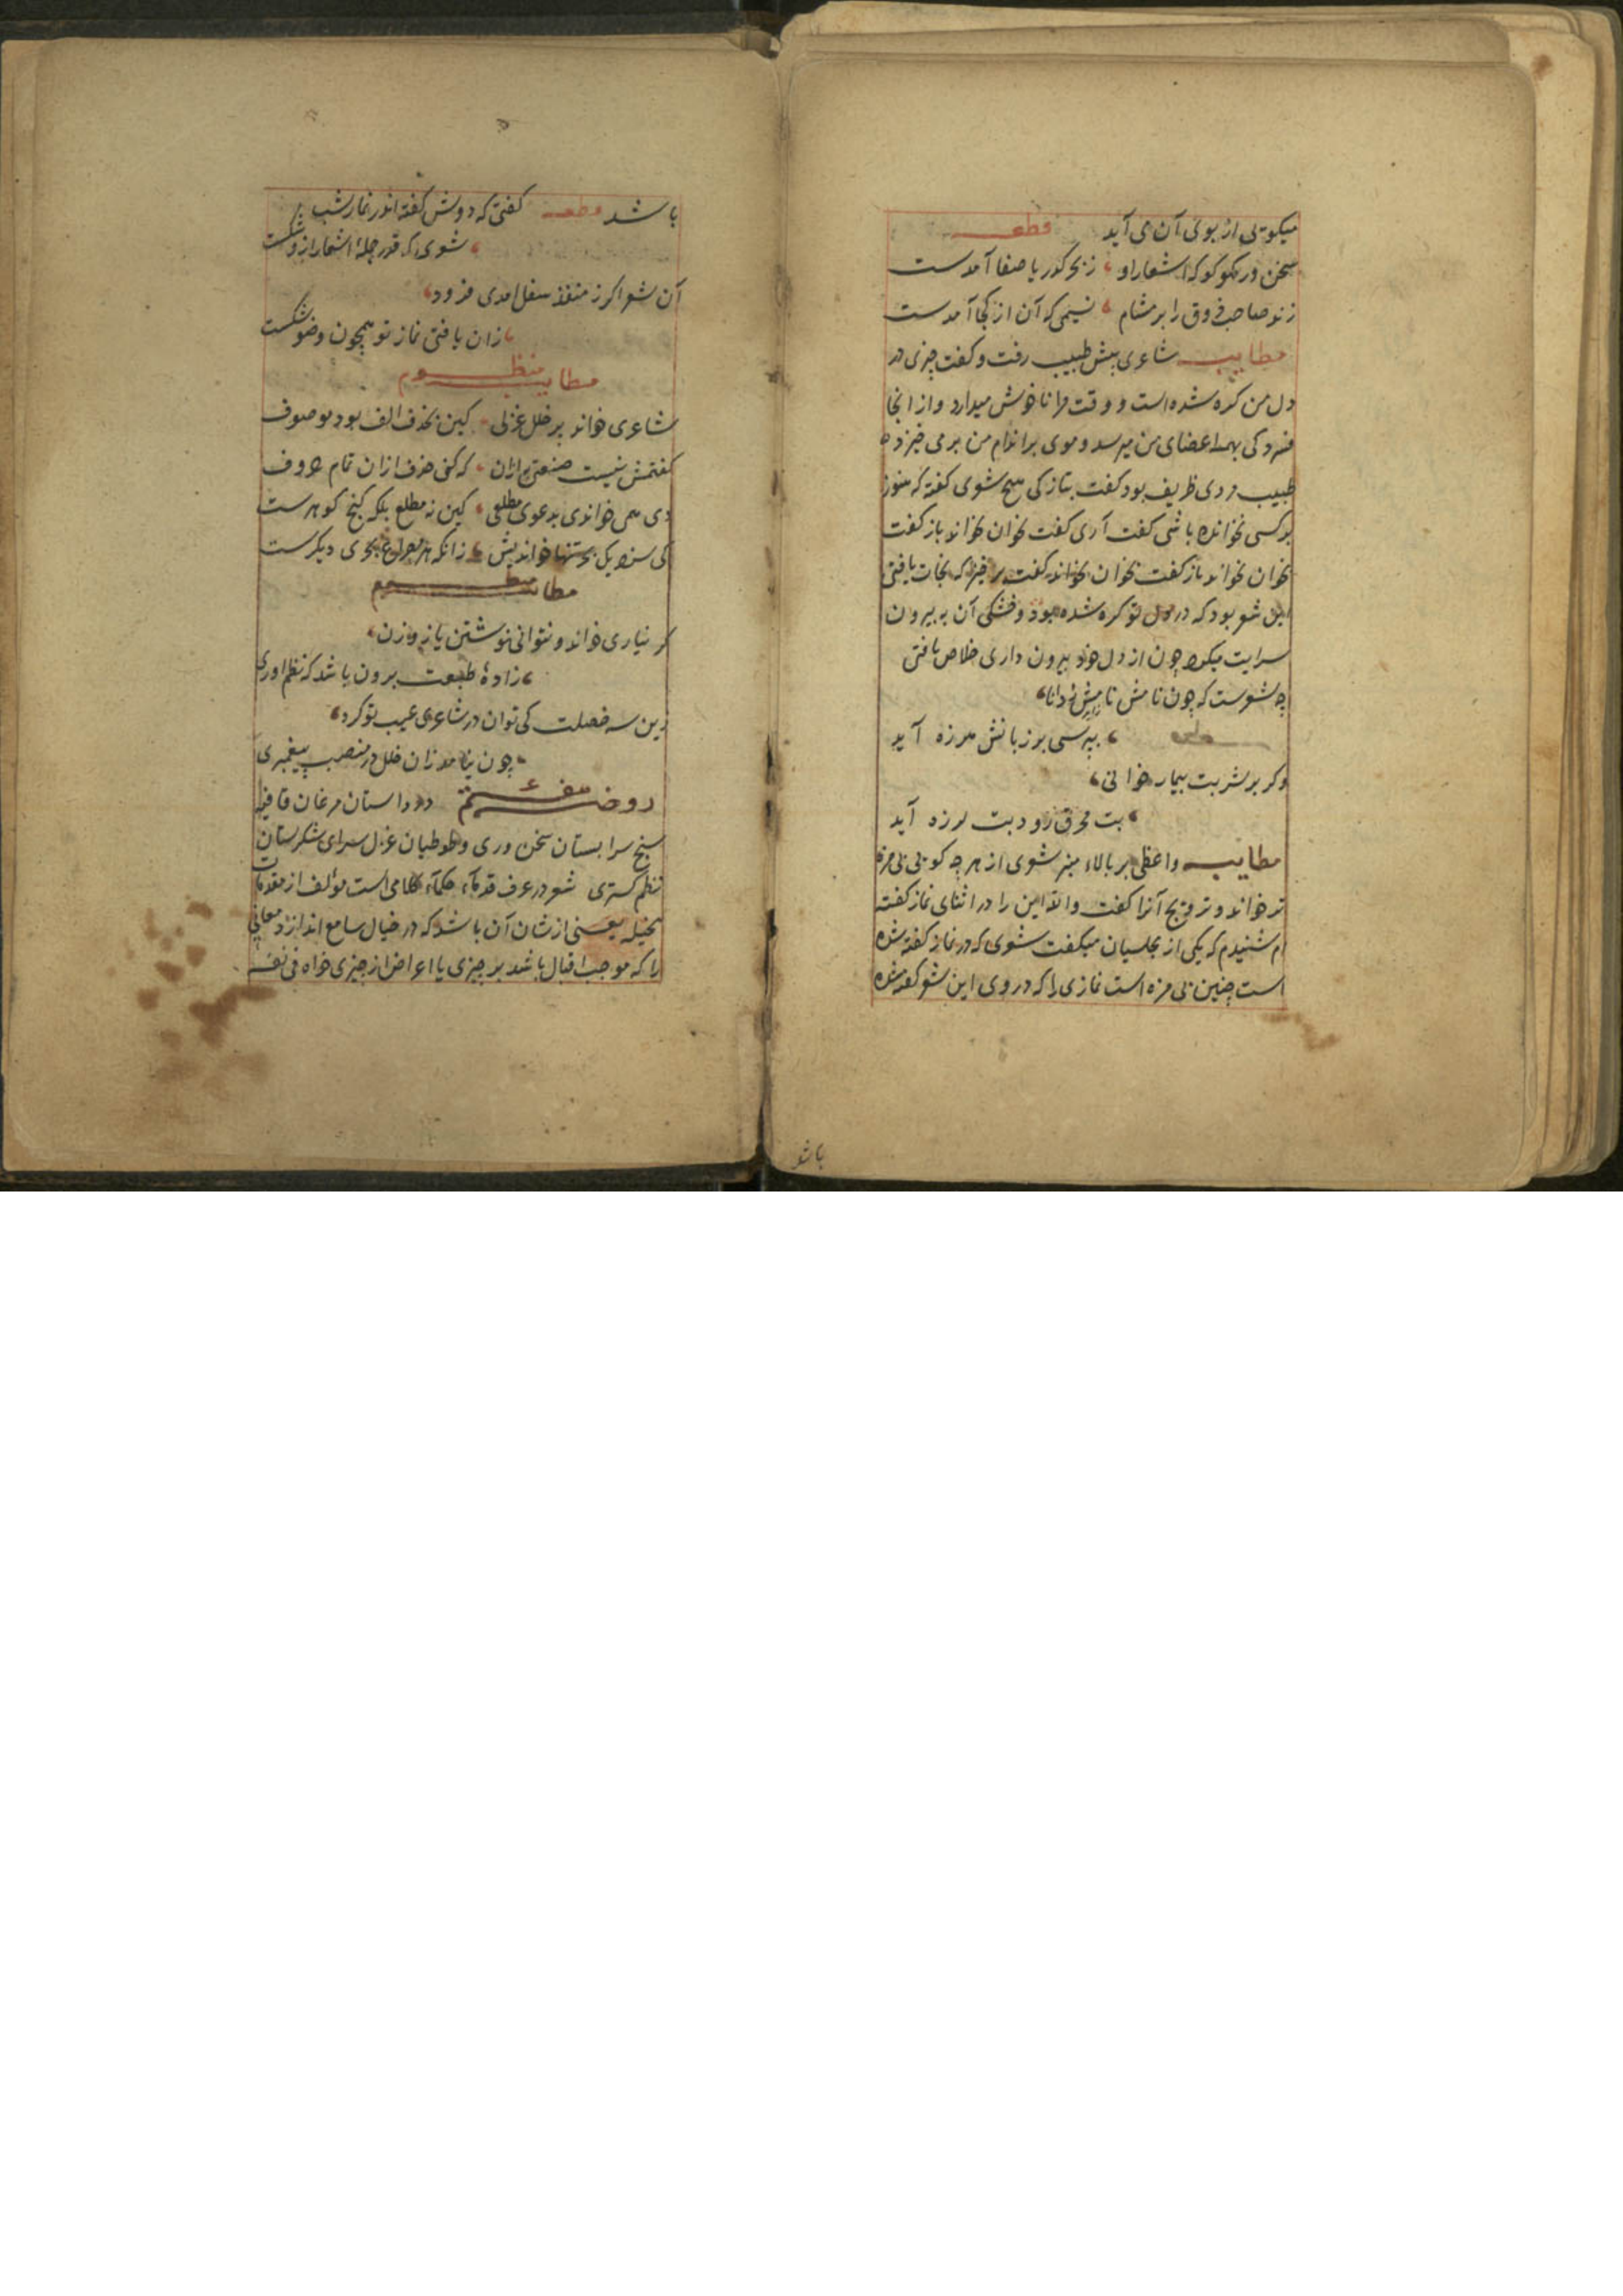 میکویی از بوی آن می آید قطعه
سخن ور مکو کو که اشعار او ز بحر کدر یا صفا آمدست
زند صاحب ذوق را بر مشام نسیمی که آن از کجا آمدست
مطایبه شاعری پیش طبیب رفت و کفت چیزی در
دل من کره شده است و وقت مرا ناخوش میدارد و از انجا
فسردکی بهمه اعضای من میرسد و موی بر اندام من بر می خیزد
طبیب مردی ظریف بود کفت بتازکی هیچ شعری کفته که هنوز
بر کسی نخوانده باشی کفت آری کفت بخوان بخواند باز کفت
بخوان بخواند باز کفت بخوان بخواند کفت بر خیز که نجات یافتی
این شعر بود که در دل تو کره شده بود و خشکی آن به بیرون
سرایت میکرد چون از دل خود بیرون دادی خلاص یافتی
چه شعرست که چون نامش
بپرسی بر زبانش هرزه آید
وکر بر شربت بیمار خوانی
تب محرق رود تب لرزه آید
مطایبه واعظی بر بالاء منبر شعری از هر چه کویی بی مزه
تر خواند و ترویج آنرا کفت والله این را در اثنای نماز کفته
ام شنیدم که یکی از مجلسیان میکفت شعری که در نماز کفته شده
است چنین بی مزه است نمازی را که در وی این شعر کفته شده
باشد
باشد قطعه کفتی که دوش کفته اندر نماز شب
شعری که قدر جملهٔ اشعار ازو شکست
آن شعر اکر ز منفذ سفل امدی فرود
زان یافتی نماز تو همچون وضو شکست
مطایبه منظوم
شاعری خواند پر خلل غزلی کین بحذف الف بود موصوف
کفتمش نیست صنعتی به ازان که کنی حذف ازان تمام حروف
دی همی خواندی بدعوی مطلعی کین نه مطلع بلکه کنج کوهرست
کی سزد یک بحر تنها خواندیش زانکه هر مصراع بحری دیکرست
مطایبه منظوم
کر نیاری خواند و نتوانی نوشتن باز وزن
زادهٔ طبعت برون باشد که نظم اوری
زین سه خصلت کی توان در شاعری عیب تو کرد
چون نیامد زان خلل در منصب پیغمبری
روضهٔ هفتم در داستان مرغان قافیه
سنج سرابستان سخن وری و طوطیان غزل سرای شکرستان
نظم کستری شعر در عرف قدماء حکماء کلامی است مؤلف از مقدمات
مخیله یعنی از شان آن باشد که در خیال سامع اندازد معانی
را که موجب اقبال باشد بر چیزی یا اعراض از چیزی خواه فی نفسه